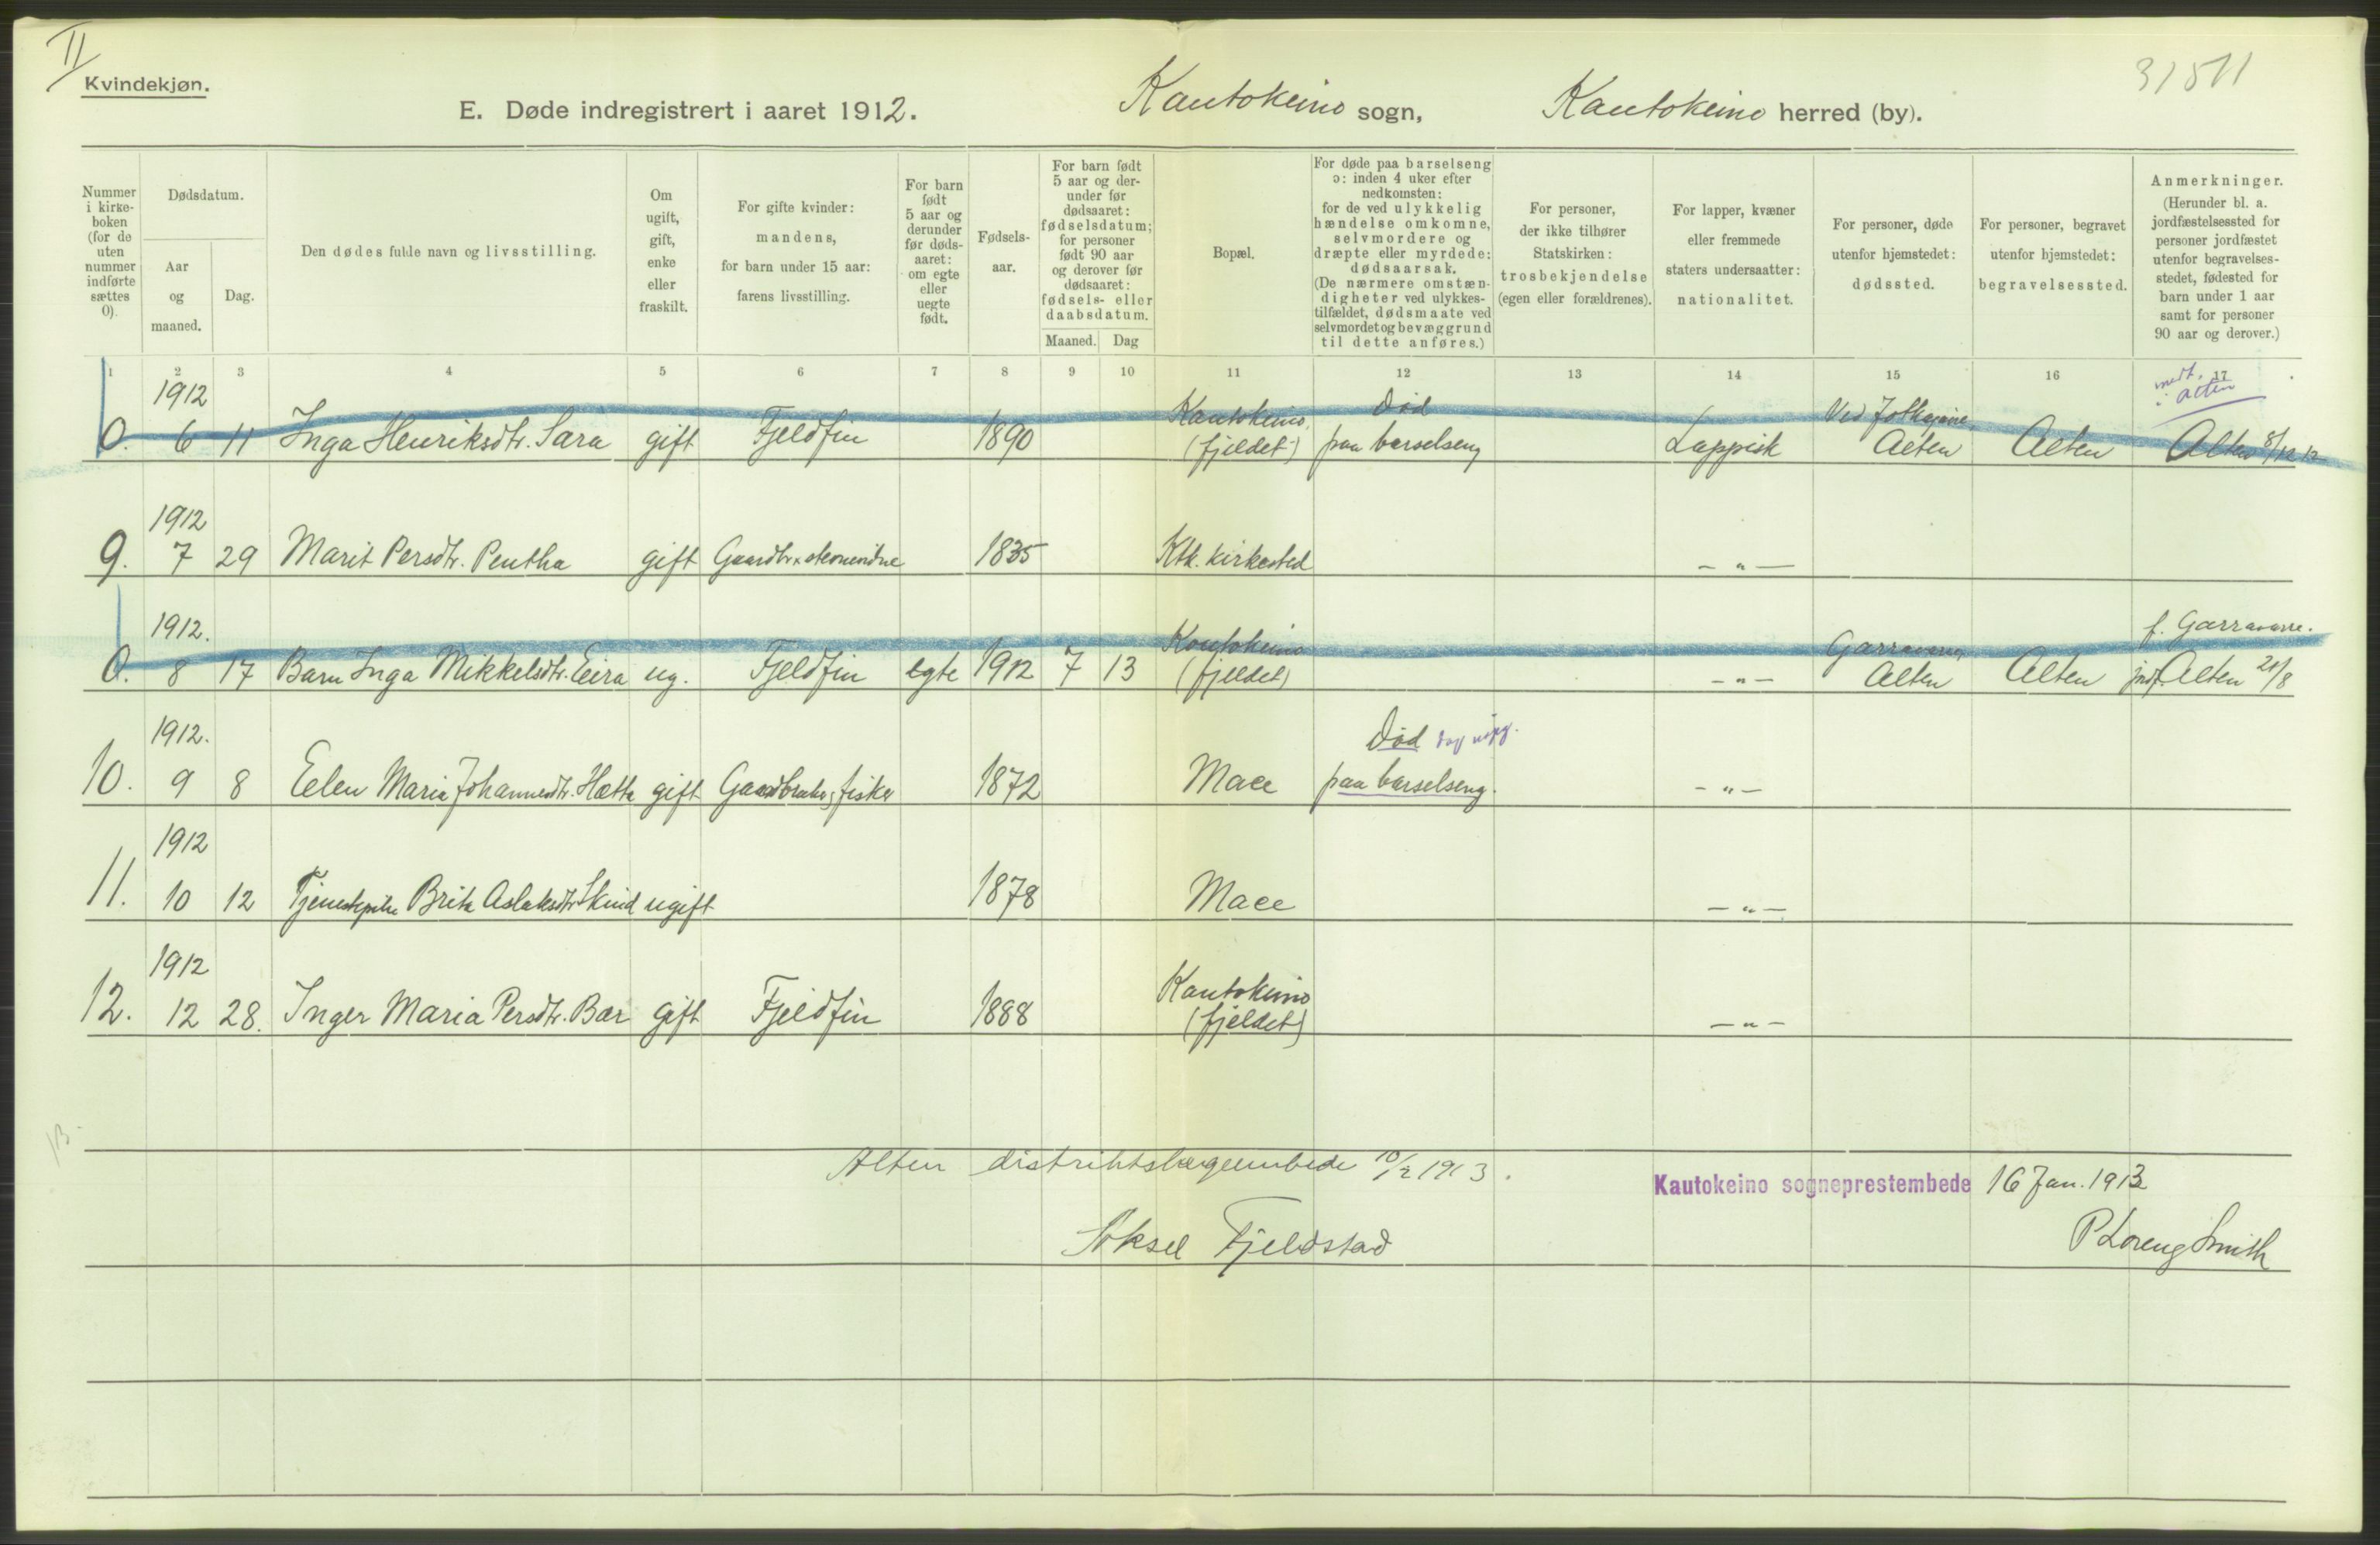 II
31511
Kvindekjøn.
E. Døde indregistrert i aaret 1912. Kautokeino sogn, Kautokeino herred (by).
Nummer i kirkeboken (for de uten nummer indførte sættes 0).
Dødsdatum.
Aar og maaned.
Dag.
Den dødes fulde navn og livsstilling.
Om ugift, gift, enke eller fraskilt.
For gifte kvinder: mandens, for barn under 15 aar: farens livsstilling.
For barn født 5 aar og derunder før dødsaaret: om egte eller uegte født.
Fødselsaar.
For barn født 5 aar og derunder før dødsaaret: fødselsdatum; for personer født 90 aar og derover før dødsaaret: fødsels- eller daabsdatum.
Maaned. Dag
Bopæl.
For døde paa barselseng ɔ: inden 4 uker efter nedkomsten: for de ved ulykkelig hændelse omkomne, selvmordere og dræpte eller myrdede: dødsaarsak. (De nærmere omstændigheter ved ulykkestilfældet, dødsmaate ved selvmordet og bevæggrund til dette anføres.)
For personer, der ikke tilhører Statskirken: trosbekjendelse (egen eller forældrenes).
For lapper, kvæner eller fremmede staters undersaatter: nationalitet.
For personer, døde utenfor hjemstedet: dødssted.
For personer, begravet utenfor hjemstedet: begravelsessted.
Anmerkninger. (Herunder bl. a. jordfæstelsessted for personer jordfæstet utenfor begravelsesstedet, fødested for barn under 1 aar samt for personer 90 aar og derover.)
1 2 3 4 5 6 7 8 9 10 11 12 13 14 15 16 17
1912 Kautokeino Død Ved
i Alten
0. 6 11 Inga Henriksdtr. Sara gift Fjeldfin 1890 (fjeldet) paa barselseng Lappisk Alten Alten Alten 8/12 12
1912
9. 7 29 Marit Persdtr. Pentha gift 1835 Ktk. kirkested - " -
1912. Kautokeino f. Garravarre.
0. 8 17 Barn Inga Mikkelsdtr. Eira ug. Fjeldfin egte 1912 7 13 (fjeldet) - " - Alten Alten jrdf. Alten 21/8
1912. Død
10. 9 8 Ellen Maria Johannesdtr. Hætta gift Gaardbruker, fisker 1872 Mace paa barselseng. - " -
1912
11. 10 12 Tjenestepike Brita Aslaksdtr. Skind ugift 1878 Mace - " -
1912 Kautokeino
12. 12 28. Inger Maria Persdtr. Bær gift Fjeldfin 1888 (fjeldet) - " -
Alten distriktslægeembede 10/2 1913.
Kautokeino sogneprestembede 16 Jan. 1913
Aksel Fjeldstad
P Loreng Smith